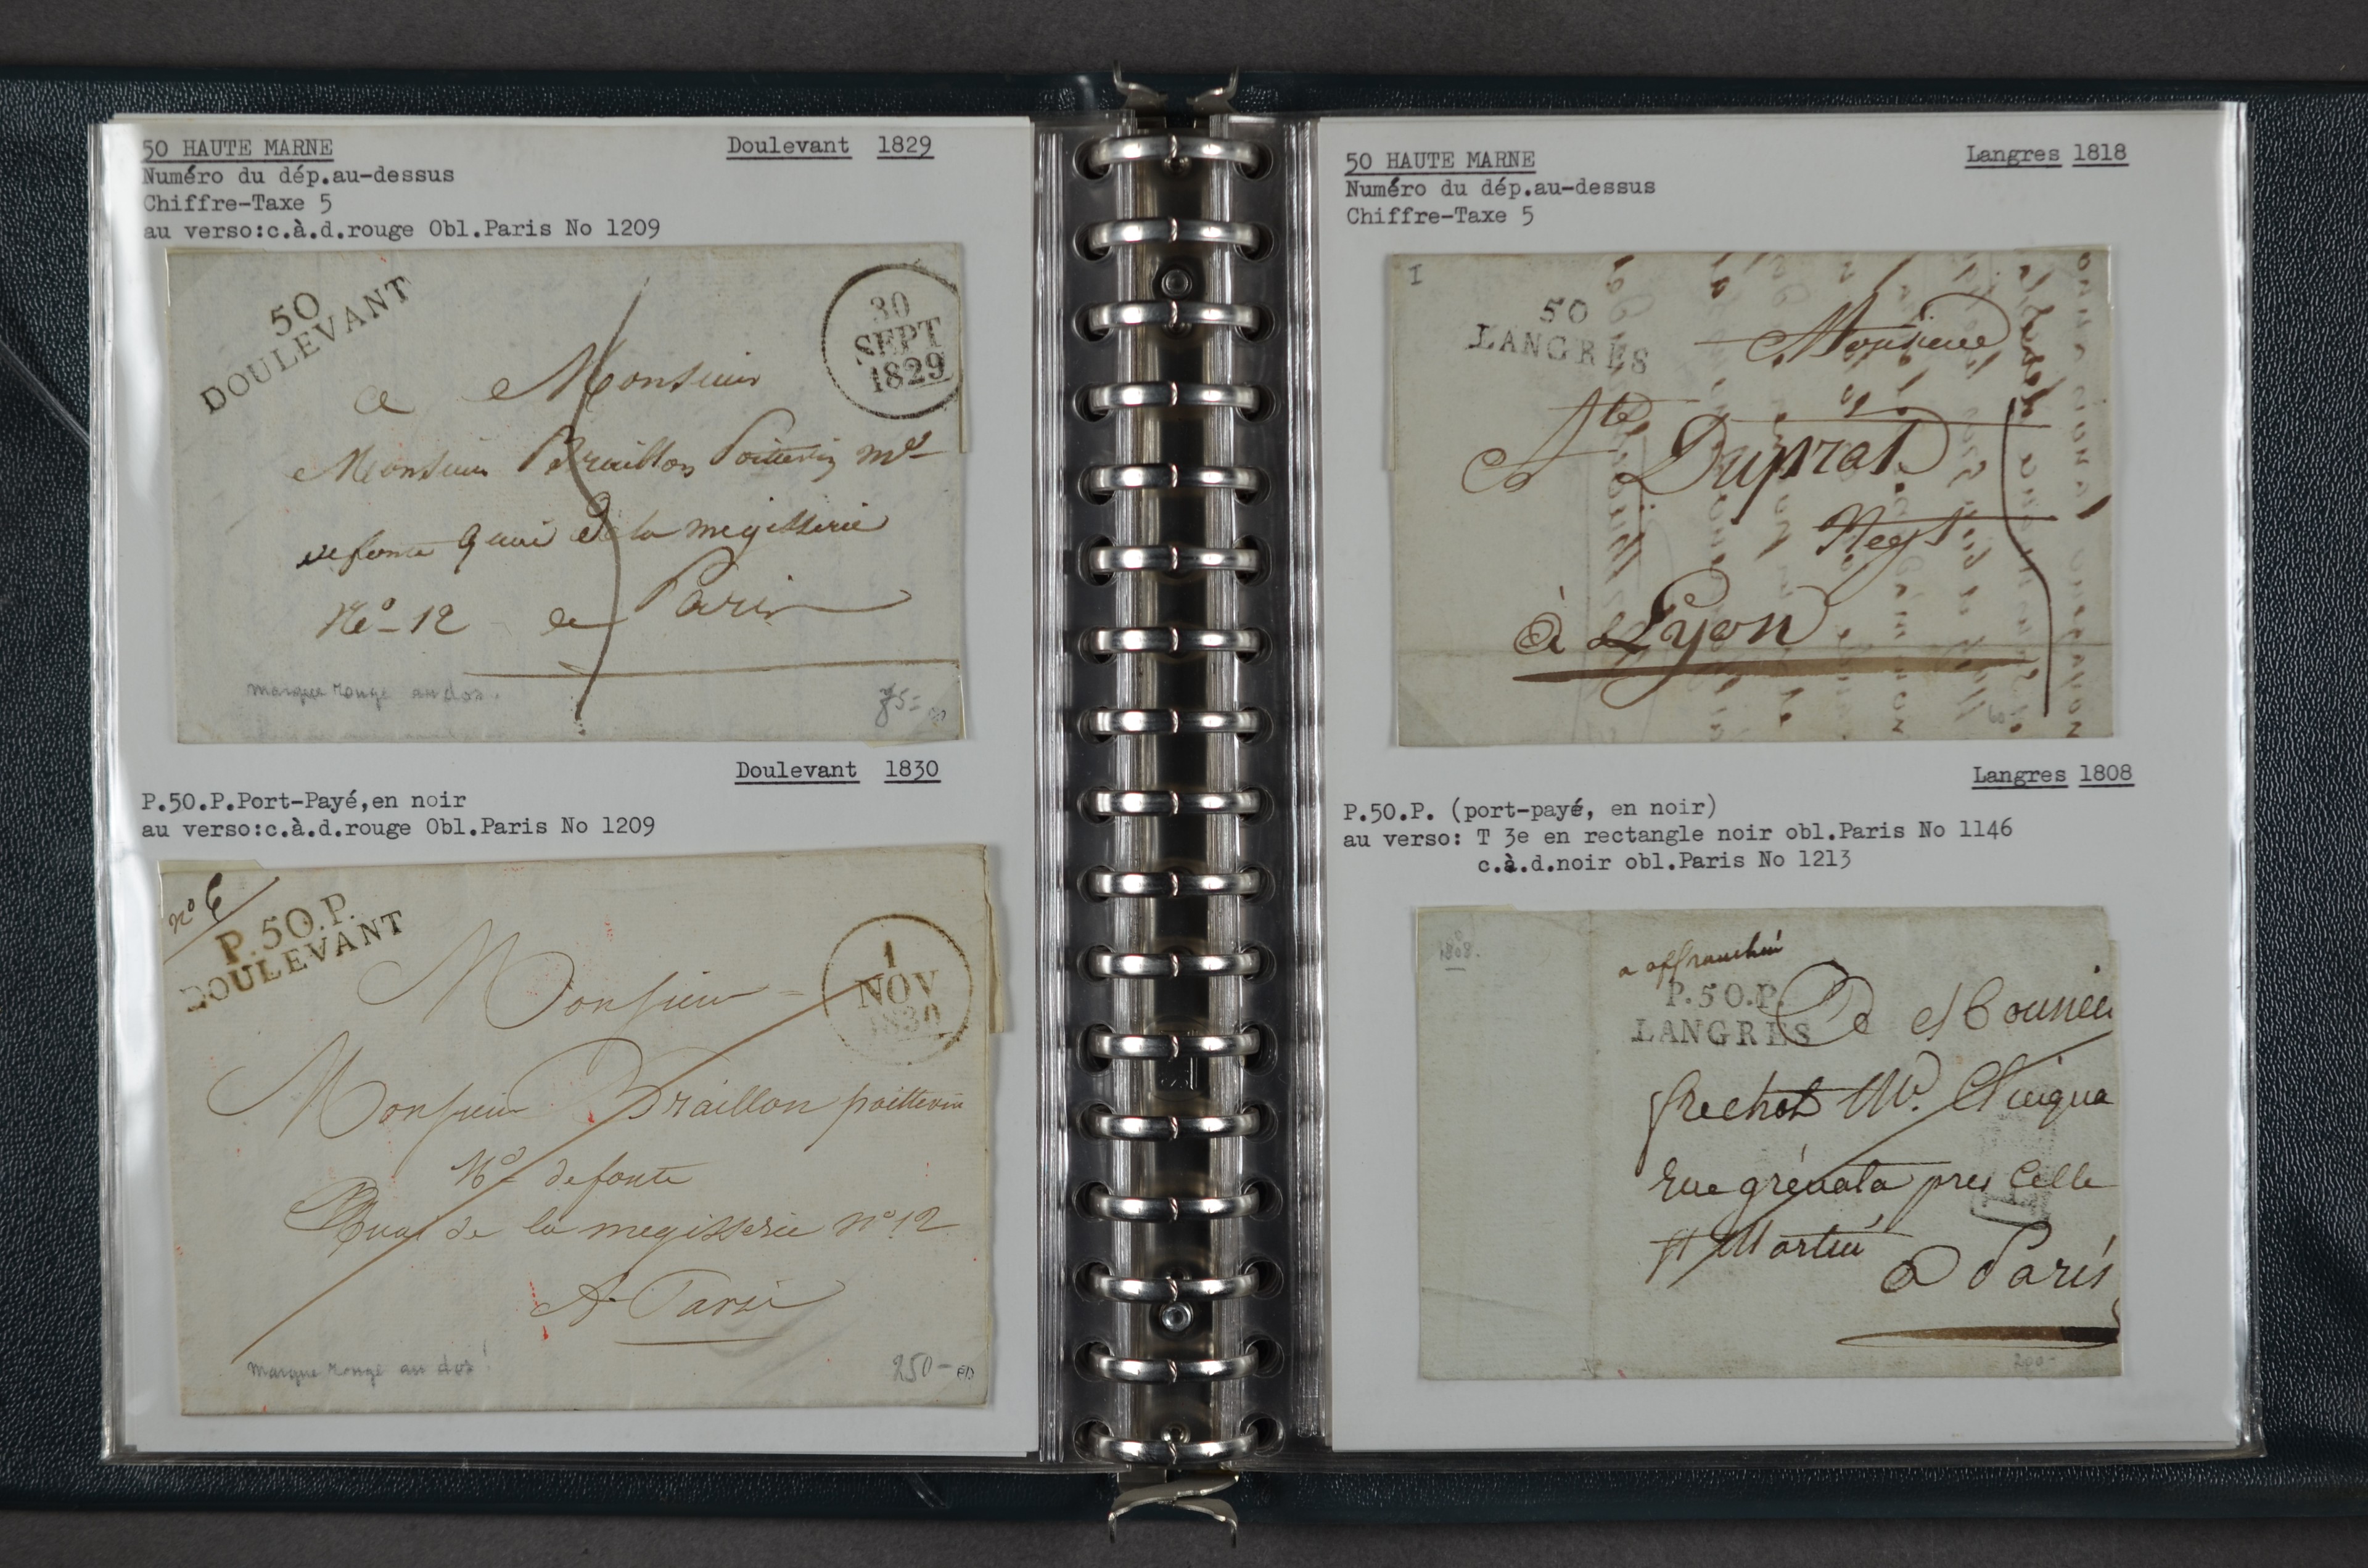 50 HAUTE MARNE
Doulevant 1829
Numéro du dép.au-dessus
Chiffre-Taxe 5
au verso:c.à.d.rouge Obl.Paris No 1209
50
DOULEVANT
30
SEPT
1829
a Monsieur
Monsieur Braillon Poittevin md
de fonte Quai de la megisserie
No 12 a Paris
marque rouge au dos.
75=
Doulevant 1830
P.50.P.Port-Payé,en noir
au verso:c.à.d.rouge Obl.Paris No 1209
no 6
P.50.P.
DOULEVANT
1
NOV
1830
Monsieur
Monsieur Braillon poittevin
Md de fonte
Quai de la megisserie no 12
A Paris
marque rouge au dos!
250-
50 HAUTE MARNE
Langres 1818
Numéro du dép.au-dessus
Chiffre-Taxe 5
I
50
LANGRES
Monsieur
Duprat
Negt
à Lyon
Langres 1808
P.50.P. (port-payé, en noir)
au verso: T 3e en rectangle noir obl.Paris No 1146
c.à.d.noir obl.Paris No 1213
1808.
a affranchir
P.50.P.
LANGRES
rue grénata pres Celle
st Martin
a Paris
200-